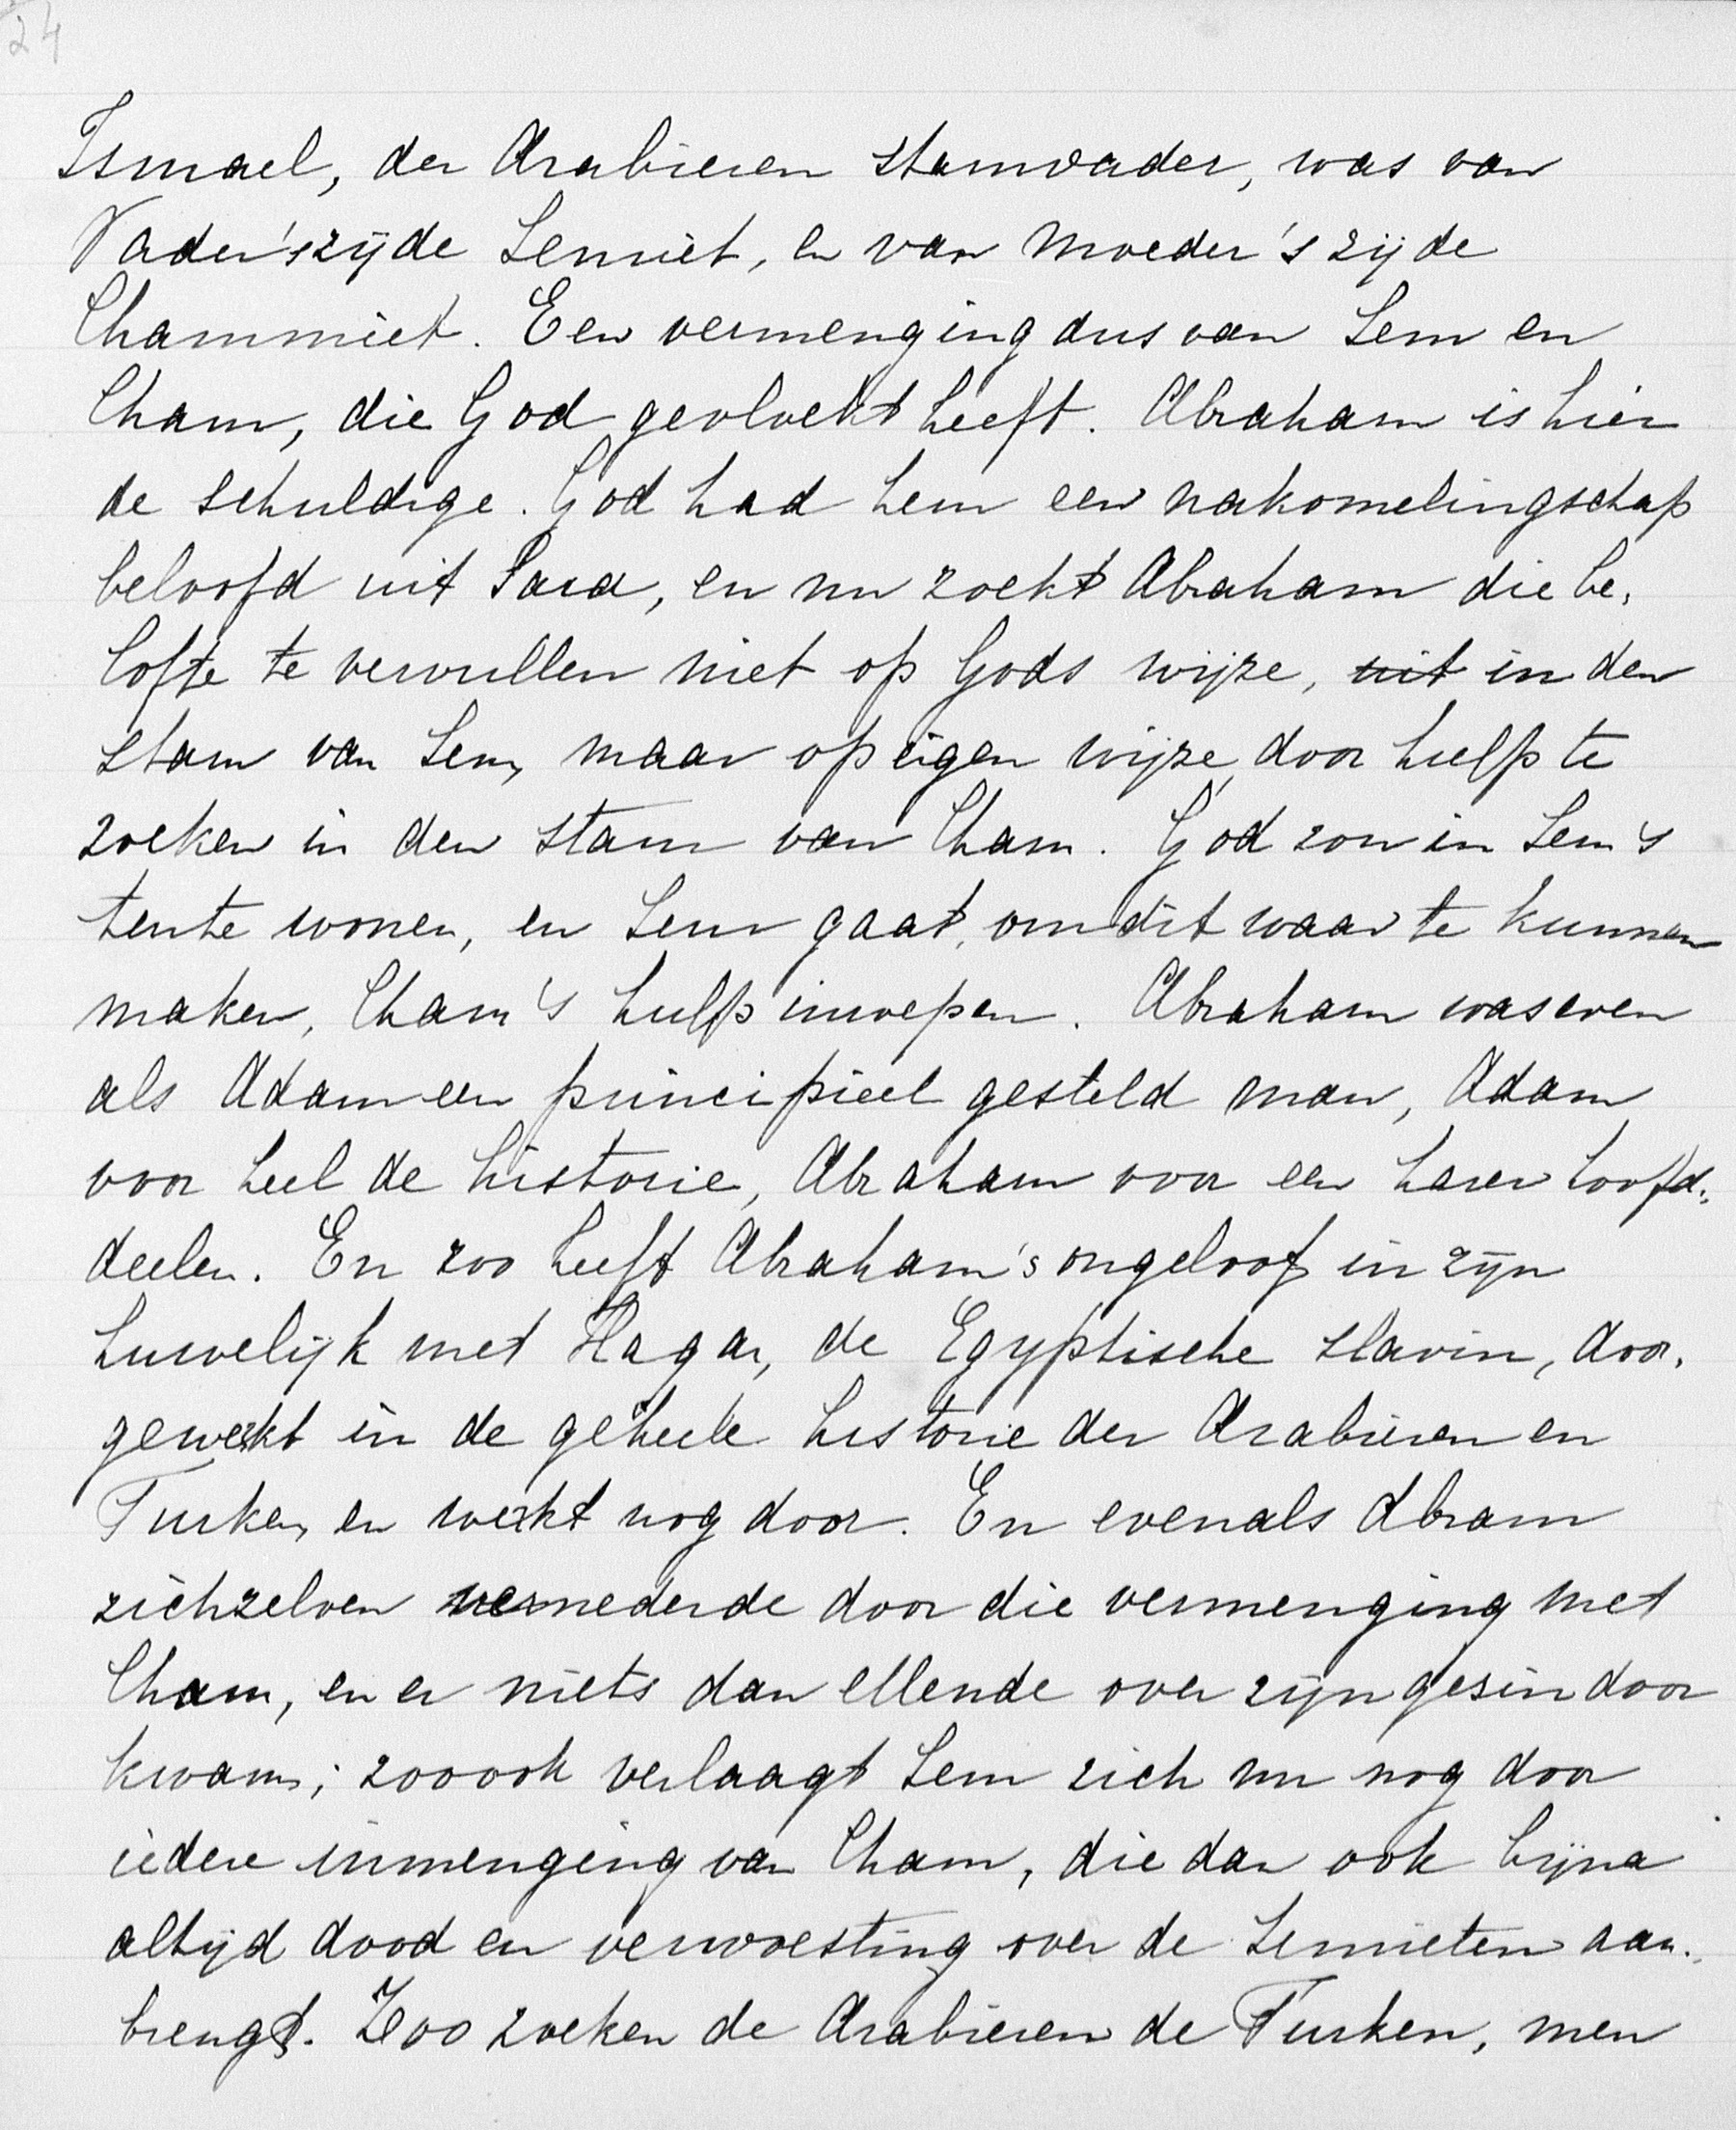 24
Ismael, der Arabieren stamvader, was van
Vader's zijde Semiet, en van Moeder's zijde
Chammiet. Een vermenging dus van Sem en
Cham, die God gevloekt heeft. Abraham is hier
de schuldige. God had hem een nakomelingschap
beloofd uit Sara, en nu zoekt Abraham die be-
lofte te vervullen niet op Gods wijze, uit in den
stam van Sem, maar op eigen wijze door hulp te
zoeken in den stam van Cham. God zou in Sem's
tente wonen, en Sem gaat, om dit waar te kunnen
maken, Cham's hulp inroepen. Abraham was even
als Adam een principieel gesteld man, Adam
voor heel de historie, Abraham voor een harer hoofd-
deelen. En zoo heeft Abraham's ongeloof in zijn
huwelijk met Hagar, de Egyptische slavin, door-
gewerkt in de geheele historie der Arabieren en
Turken en werkt nog door. En evenals Abram
zichzelven vernederde door die vermenging met
Cham, en er niets dan ellende over zijn gesin door
kwam; zoo ook verlaagt Sem zich nu nog door
iedere inmenging van Cham, die dan ook bijna
altijd dood en verwoesting over de Semieten aan-
brengt. Zoo zoeken de Arabieren de Turken, men